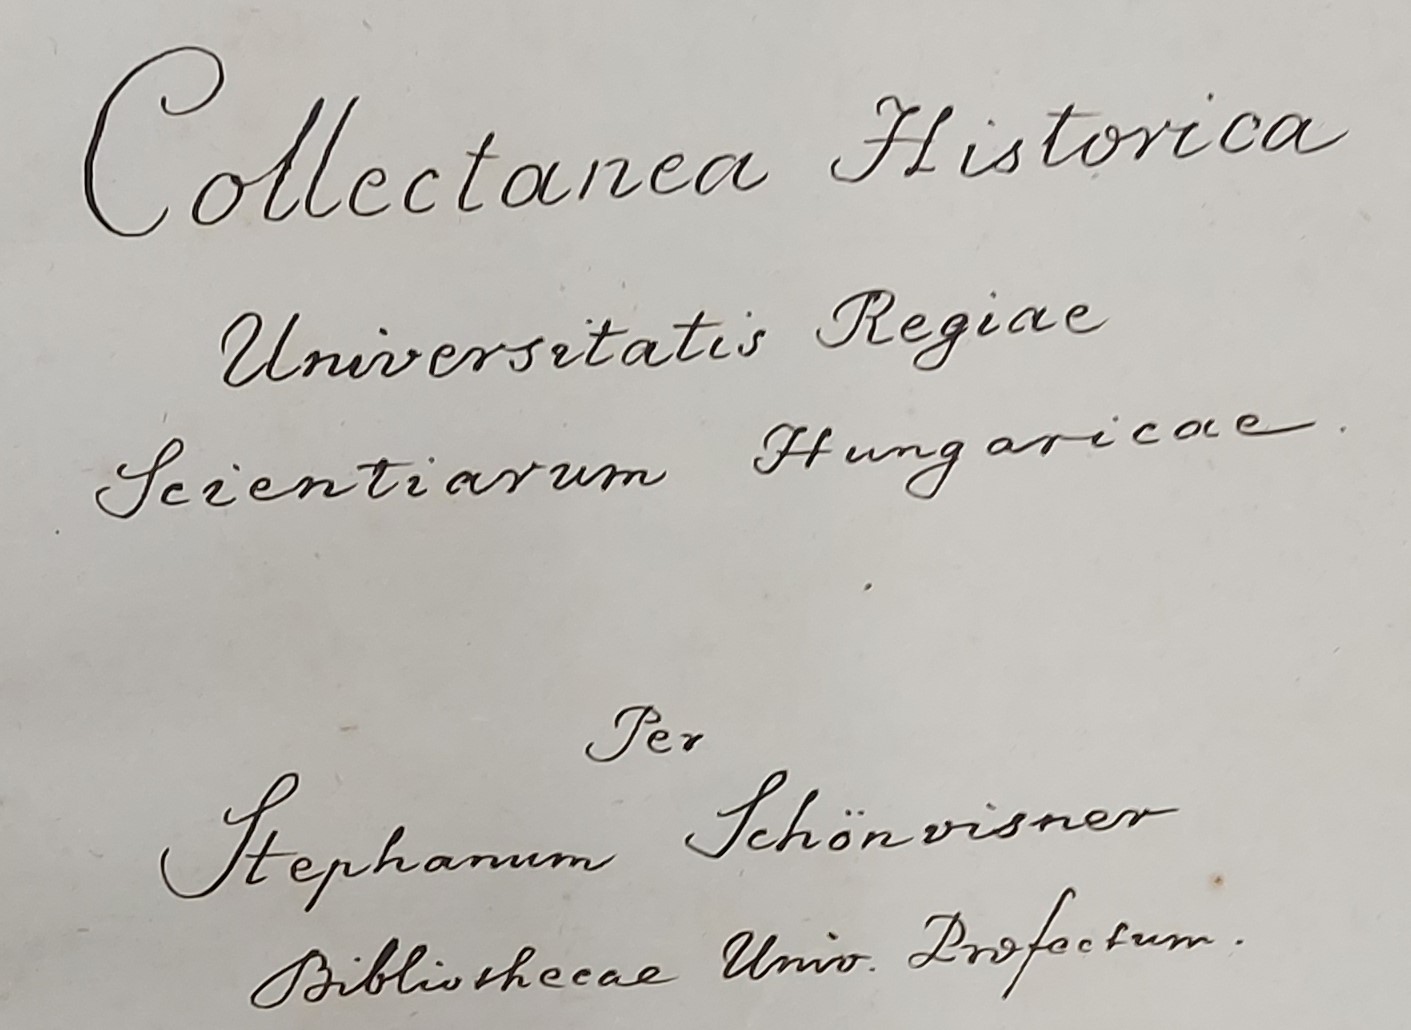 Collectanea Historica
Universitatis Regiae
Scientiarum Hungaricae.
Per
Stephanum Schönvisner
Bibliothecae Univ. Profectum.